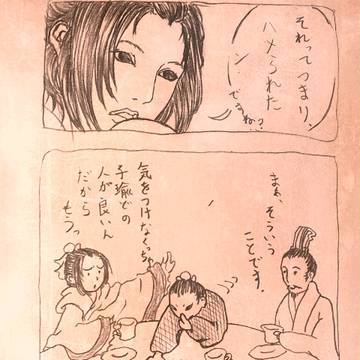 それってつまり、
ハメられた
ン
ですね？
まぁ、そういう
ことです。
気をつけなくっちゃ
子瑜どの
人が良いん
だから
もうっ